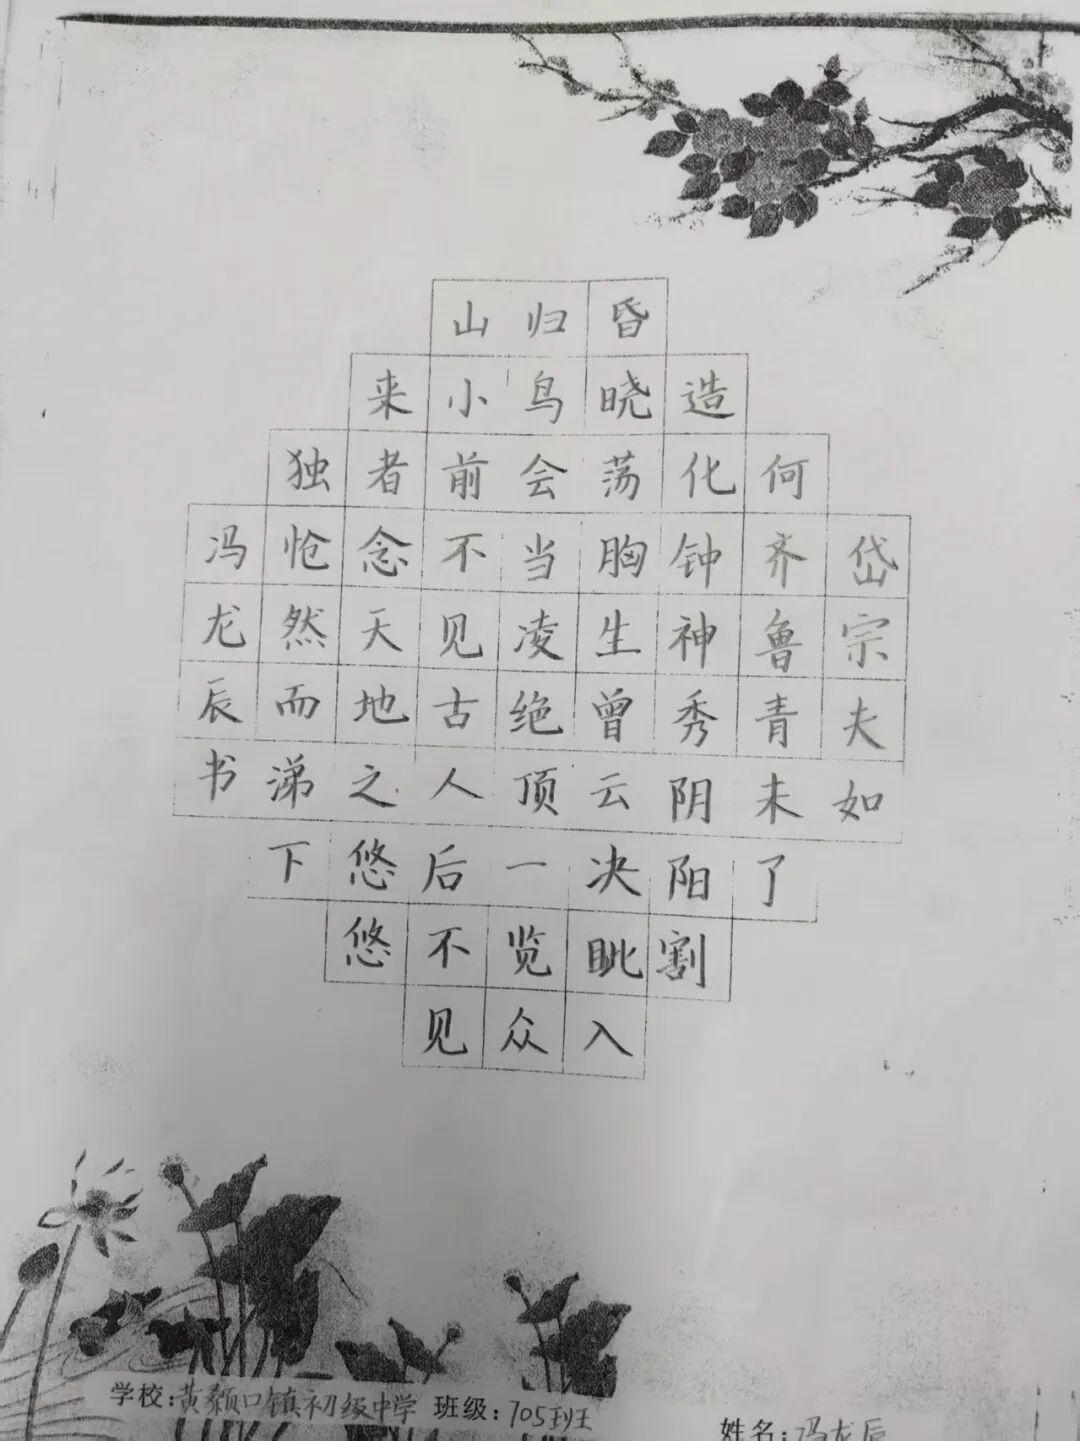 岱宗夫如
何齐鲁青未了
造化钟神秀阴阳割
昏晓荡胸生曾云决眦入
归鸟会当凌绝顶一览众
山小前不见古人后不见
来者念天地之悠悠
独怆然而涕下
冯龙辰书
学校:黄颡口镇初级中学 班级:705班 姓名:冯龙辰